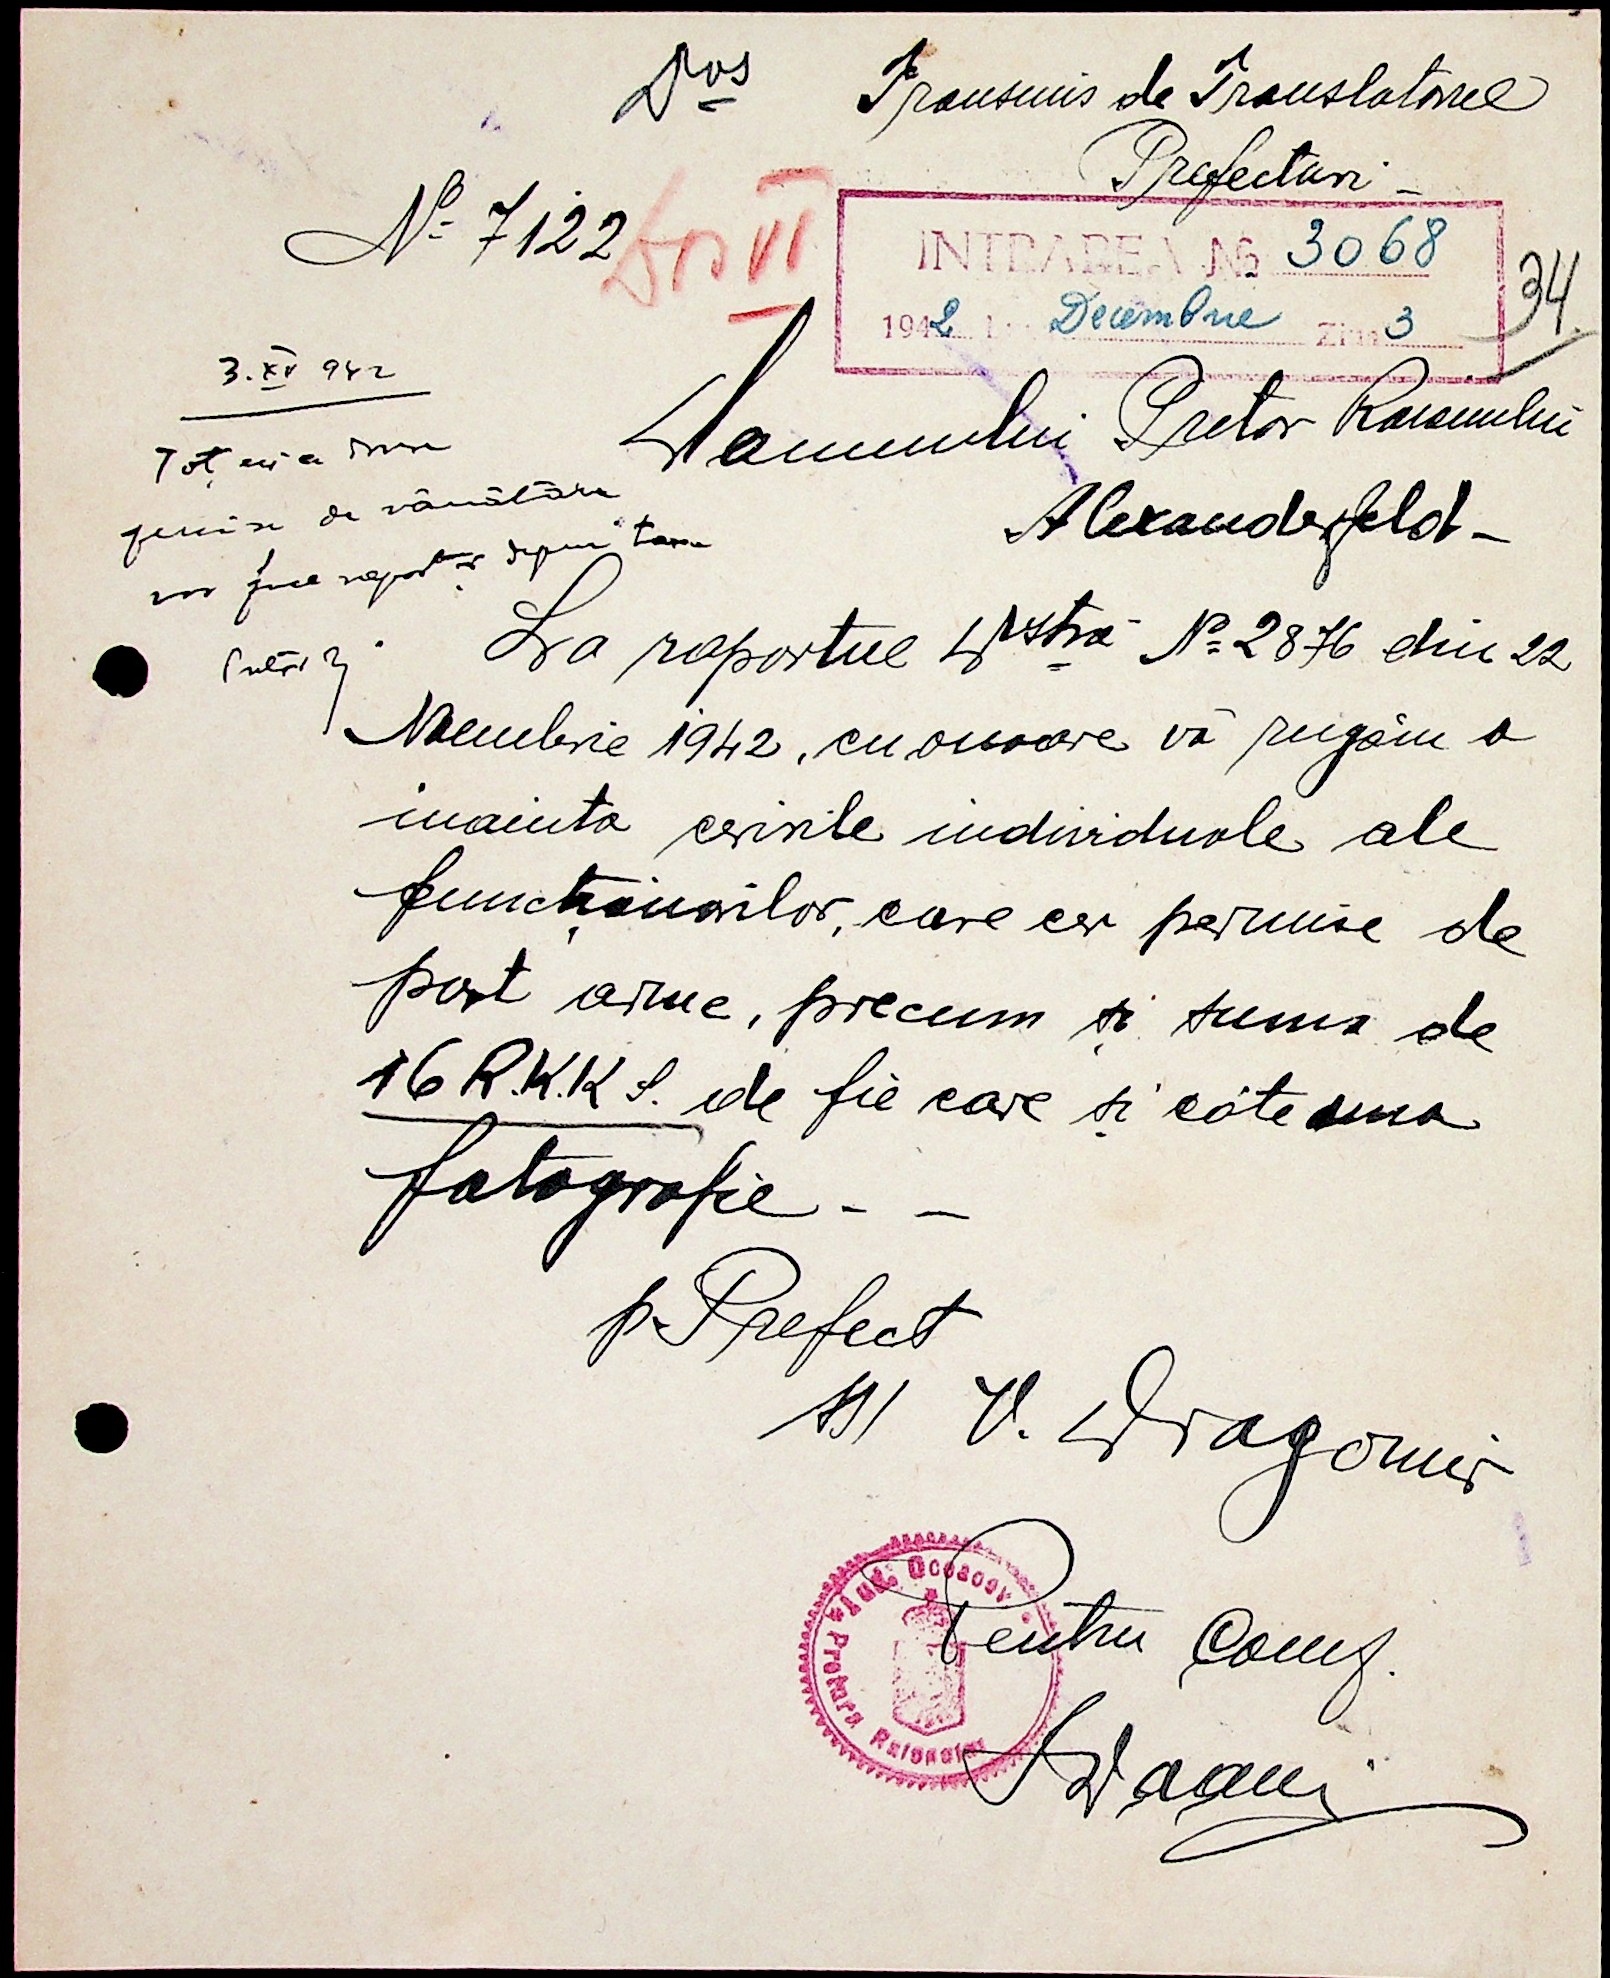 Dos
Transmis de Translatorul
Prefecturi -
Nº 7122
Dos VI
INTRAREA Nº 3068
1942 L Decembrie Ziua 3
34
3.XII 942
Domnului Pretor Raionului
Alexanderfeld -
Toți cei ce
permise de vânătoare
vor face raport și depun taxa
La raportul Dvstră Nº 2876 din 22
Noembrie 1942, cu onoare vă rugăm a
inainta ceririle individuale ale
funcționarilor, care cer permise de
port arme, precum și suma de
16 R.K.K.S. de fie care și câte una
fotografie - -
p. Prefect
ss/ V. Dragomir
Jud. Oceacov
Pretura Raionului
Pentru Conf.